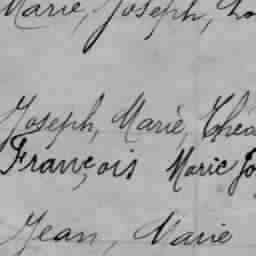 Marie, Joseph, Lo
Joseph, Marie, Théo
François Marie Jo
Jean, Marie